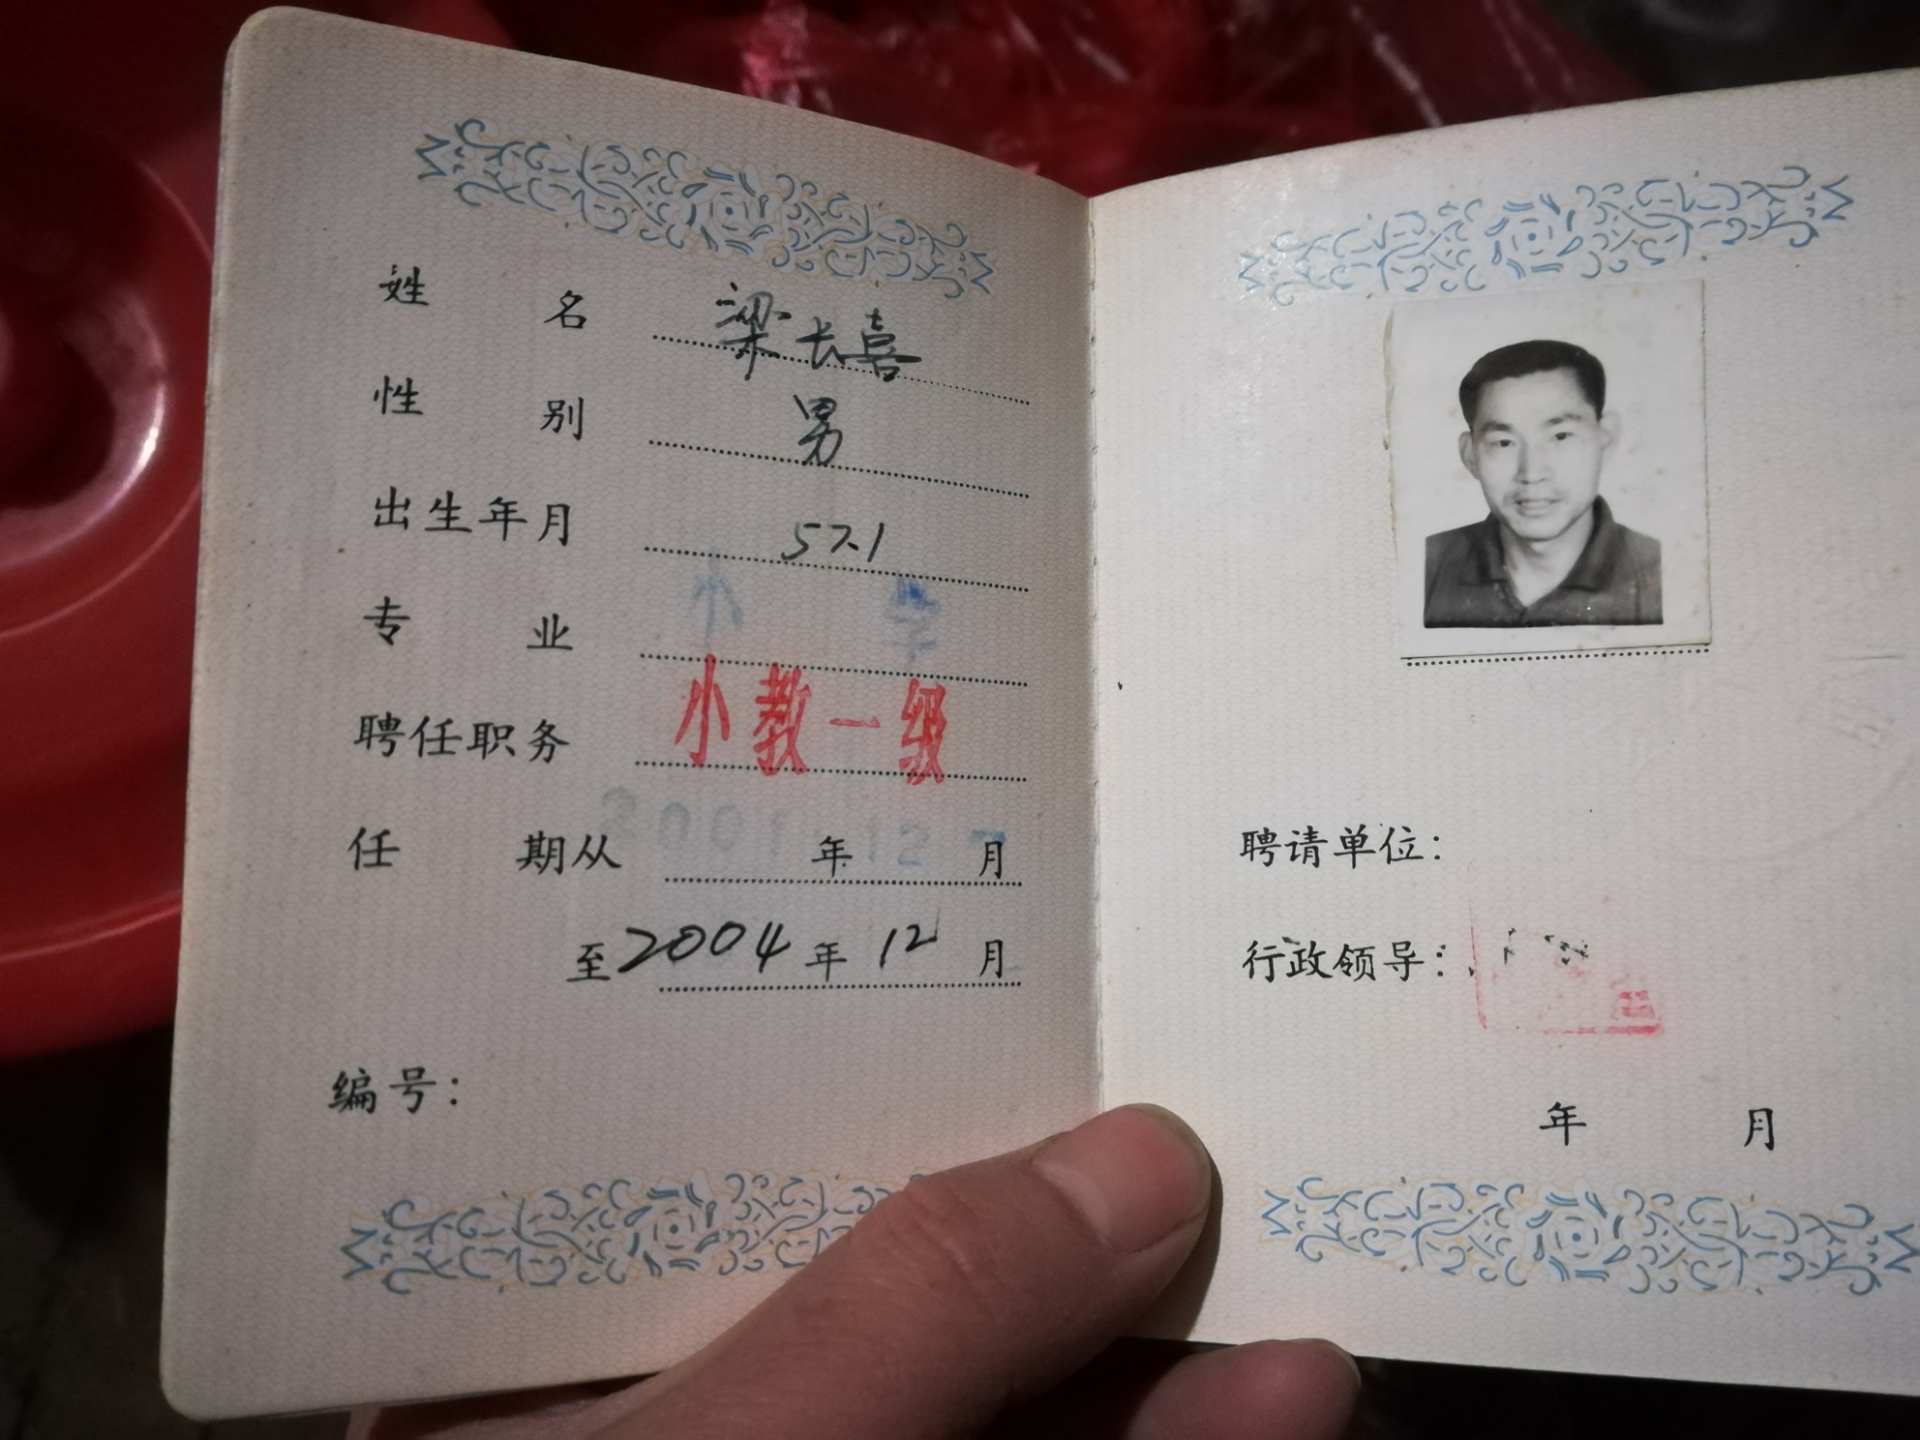 姓名 梁长喜
性别 男
出生年月 57.1
专业 小学
聘任职务 小教一级
任期从 2001年12月
至2004年12月
编号：
聘请单位：
行政领导：
年 月